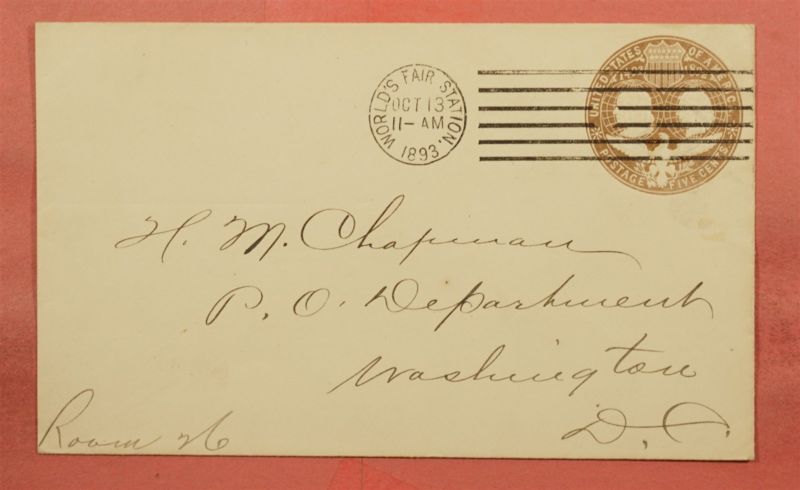 WORLD'S FAIR STATION.
OCT 13
11-AM
1893.
UNITED STATES OF AMERICA
POSTAGE FIVE CENTS
H. M. Chapman
P. O. Department
Washington
D. C.
Room 26